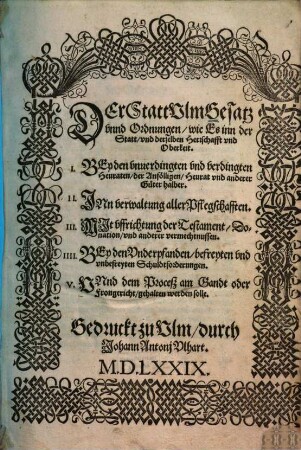 DEr Statt Vlm Gesatz
vnnd Ordnungen / wie Es inn der
Statt / vnd derselben Herrschafft vnd
Oberkeit.
I. BEyden vnuerdingten vnd verdingten
Heuraten / der Anfölligen / Heurat vnd anderer
Güter halber.
II. IN verwaltung aller Pflegschafften.
III. MIt vffrichtung der Testament / Do-
nation / vnd anderer vermechtnussen.
IIII. BEy den Vnderpfanden / befreyten vnd
vnbefreyten Schuldtforderungen.
V. VNnd dem Proceß am Gandt oder
Frongericht / gehalten werden solle.
Gedruckt zu Vlm / durch
Johann Antonj Vlhart.
M.D.LXXIX.